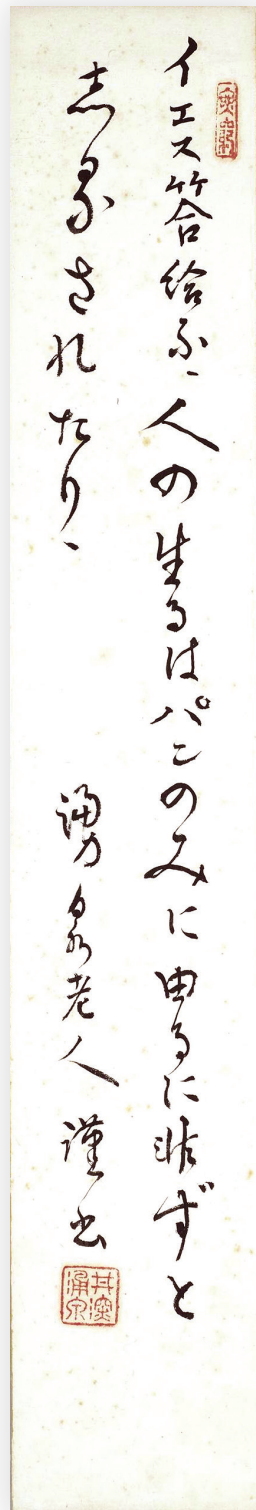 イエス答給ふ、人の生るはパンのみに由るに非ずと
志るされたり、
湧泉老人謹書